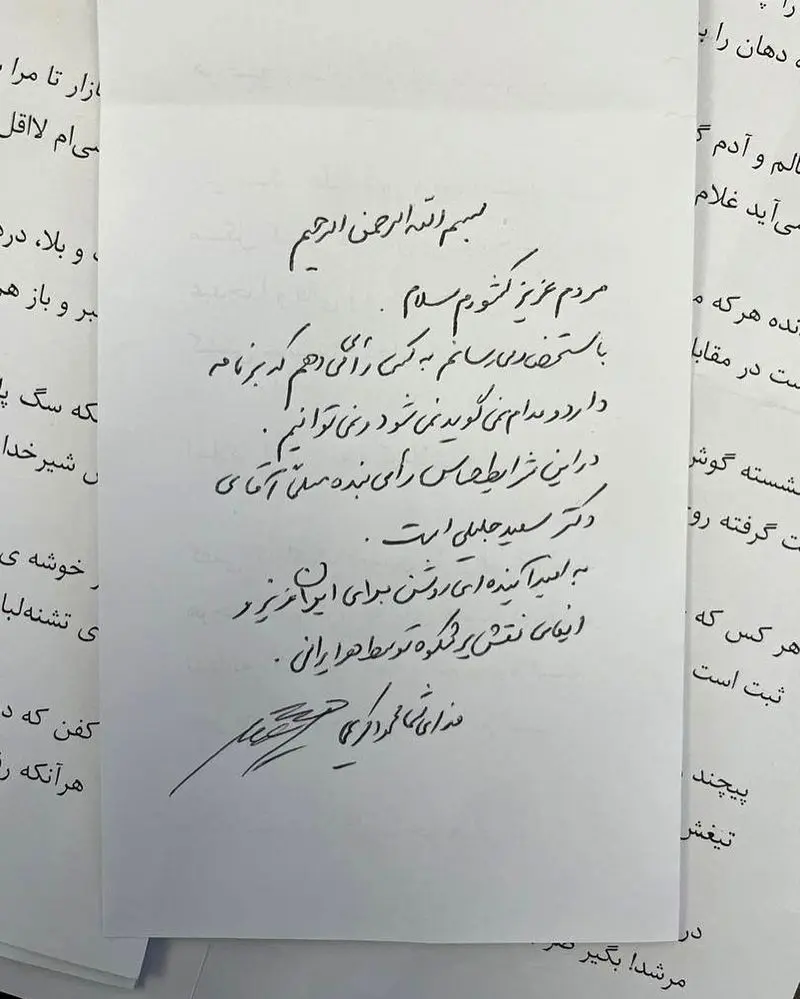 بسم الله الرحمن الرحیم
مردم عزیز کشورم سلام.
باستحضار می رسانم به کسی رأی می دهم که برنامه
دارد و مدام نمی گوید نمی شود و نمی توانیم.
در این شرایط حساس رأی بنده به آقای
دکتر سعید جلیلی است.
به امید آینده ای روشن برای ایران عزیز و
ایفای نقش پرشکوه توسط هر ایرانی.
فدای شما محمود کریمی
دهان را
ازار تا مرا
ی‌ام لااقل
و بلا، درد
بر و باز هم
که سگ
شیرخدا
خوشه ی
ی تشنه‌لبا
کفن که د
هرآنکه
الم و آدم
می‌آید غلام
نده هرکه
ست در مقابل
شسته گوش
ت گرفته رو
هر کس که
ثبت است
پیچند
تیغش
در
مرشد! بگیر